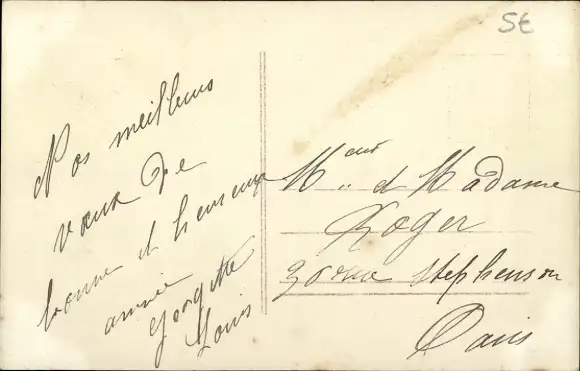 5€
Nos meilleurs
vœux de
bonne et heureuse
année
Georgette
Louis
Mr et Madame
Roger
30 rue Stephenson
Paris